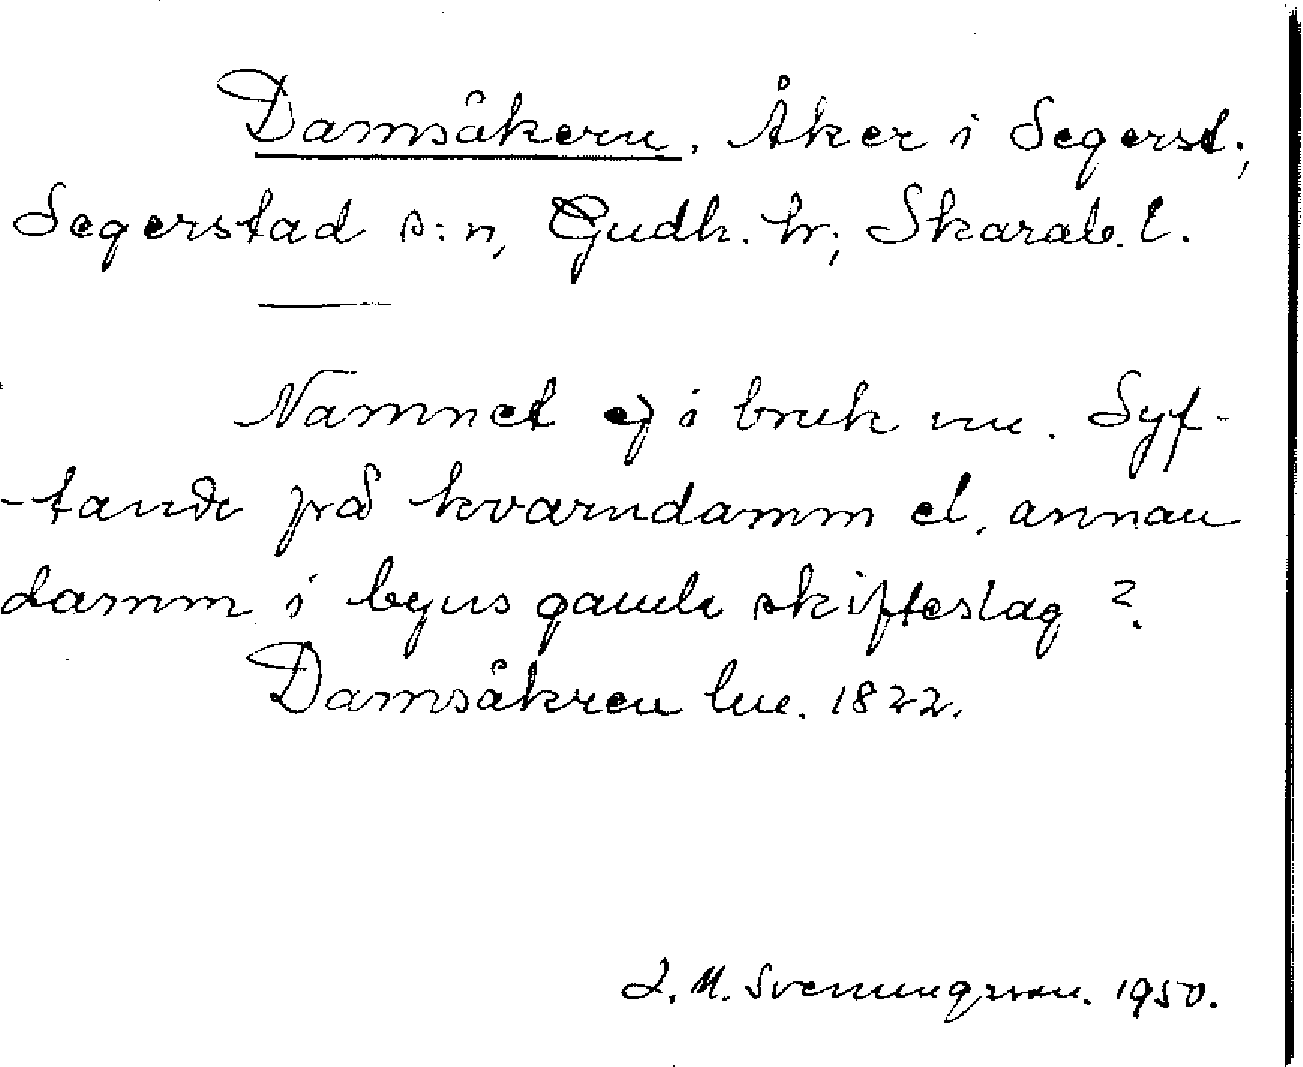 Damsåkern. Åker i Segerst.,
Segerstad s:n, Gudh. hr; Skarab. l.
Namnet ej i bruk nu. Syf-
-tande på kvarndamm el. annan
damm i byns gamla skifteslag?
Damsåkren lm. 1822.
J. M. Svenungsson. 1950.